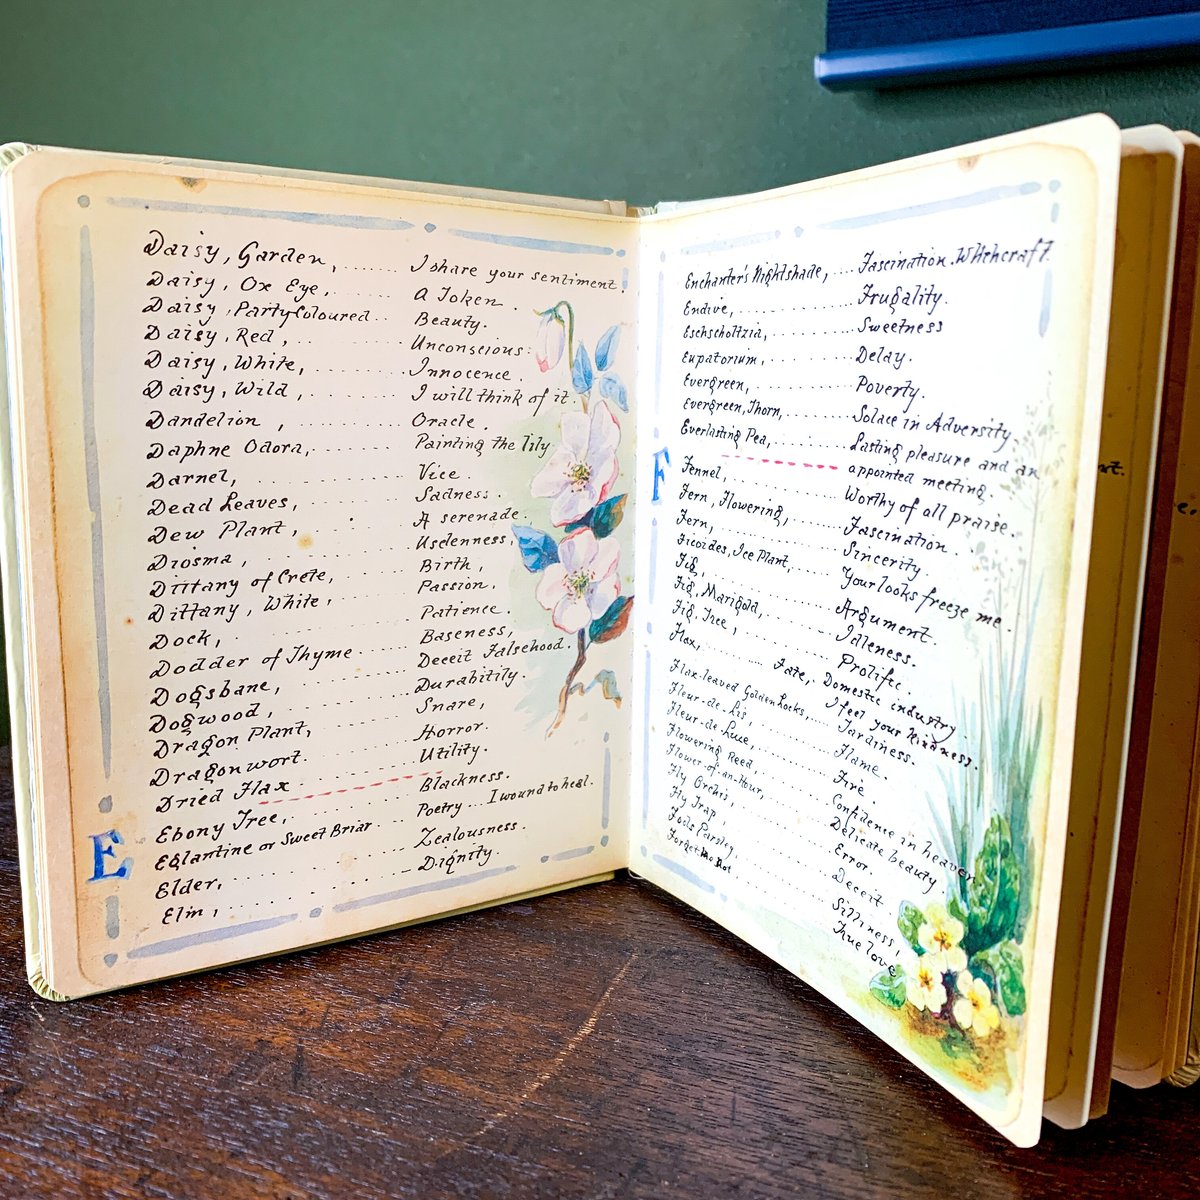 Daisy, Garden, ....... I share your sentiment.
Daisy, Ox Eye, ....... A Token.
Daisy, PartyColoured .. Beauty.
Daisy, Red, ....... Unconscious.
Daisy, White, ....... Innocence.
Daisy, Wild, ....... I will think of it.
Dandelion, ....... Oracle.
Daphne Odora, ....... Painting the lily
Darnel, ....... Vice.
Dead Leaves, ....... Sadness.
Dew Plant, ....... A serenade.
Diosma, ....... Usclenness,
Dittany of Crete, ....... Birth,
Dittany, White, ....... Passion.
Dock, ....... Patience.
Dodder of Thyme ....... Baseness,
Dogsbane, ....... Deceit Falsehood.
Dogwood, ....... Durabitily.
Dragon Plant, ....... Snare,
Dragonwort. ....... Horror.
Dried Flax ....... Utility.
E
Ebony Tree, ....... Blackness.
Eglantine or Sweet Briar ... Poetry... I wound to heal.
Elder, ....... Zealousness.
Elm, ....... Dignity.
Enchanter's Nightshade, .... Fascination. Whitchcraft.
Endive, ....... Frugality.
Eschscholtzia, ....... Sweetness
Eupatorium, ....... Delay.
Evergreen, ....... Poverty.
Evergreen, Thorn, ....... Solace in Adversity.
Everlasting Pea, ....... Lasting pleasure and an
appointed meeting.
F
Fennel, ....... Worthy of all praise.
Fern, Flowering, ....... Fascination.
Fern, ....... Sincerity
Ficoides, Ice Plant, ....... Your looks freeze me.
Fig, ....... Argument.
Fig, Marigold, ....... Idleness.
Fig, Tree, ....... Prolific.
Flax, ....... Fate, Domestic industry.
I feel your kindness.
Flax-leaved Goldenlocks, .... Tardiness.
Fleur-de-lis, ....... Flame.
Fleur-de-luce, ....... Fire.
Flowering Reed, ....... Confidence in heaven
Flower-of-an-Hour, ....... Delicate beauty.
Fly Orchis, ....... Error.
Fly Trap ....... Deceit.
Fools Parsley ....... Silliness,
Forget Me Not ....... True love